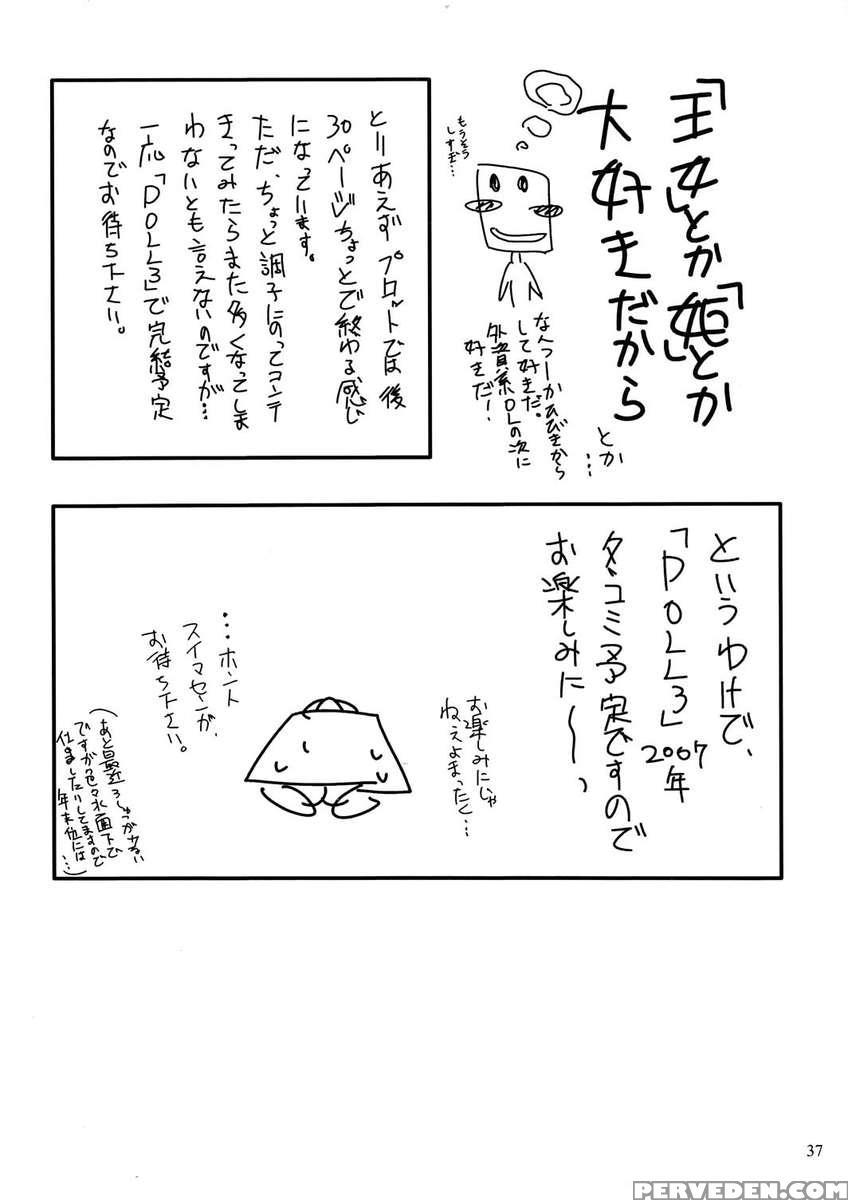 「王女」とか「姫」とか
大好きだから
とか…
もうそう
しすぎ…
なんつーかひびきから
して好きだ。
外資系OLの次に
好きだ！
とりあえずプロットでは後
30ページちょっとで終わる感じ
になっています。
ただ、ちょっと調子にのってコンテ
きってみたらまた多くなってしま
わないとも言えないのですが…
一応「DOLL3」で完結予定
なのでお待ち下さい。
というわけで、
「DOLL3」2007年
冬コミ予定ですので
お楽しみに〜、
お楽しみにじゃ
ねぇよまったく…
…ホント
スイマセンが、
お待ち下さい。
(あと最近ろしゅつが少ない
ですが色々水面下で
仕事したりしてますので
年末位には…)
37
PERVEDEN.COM